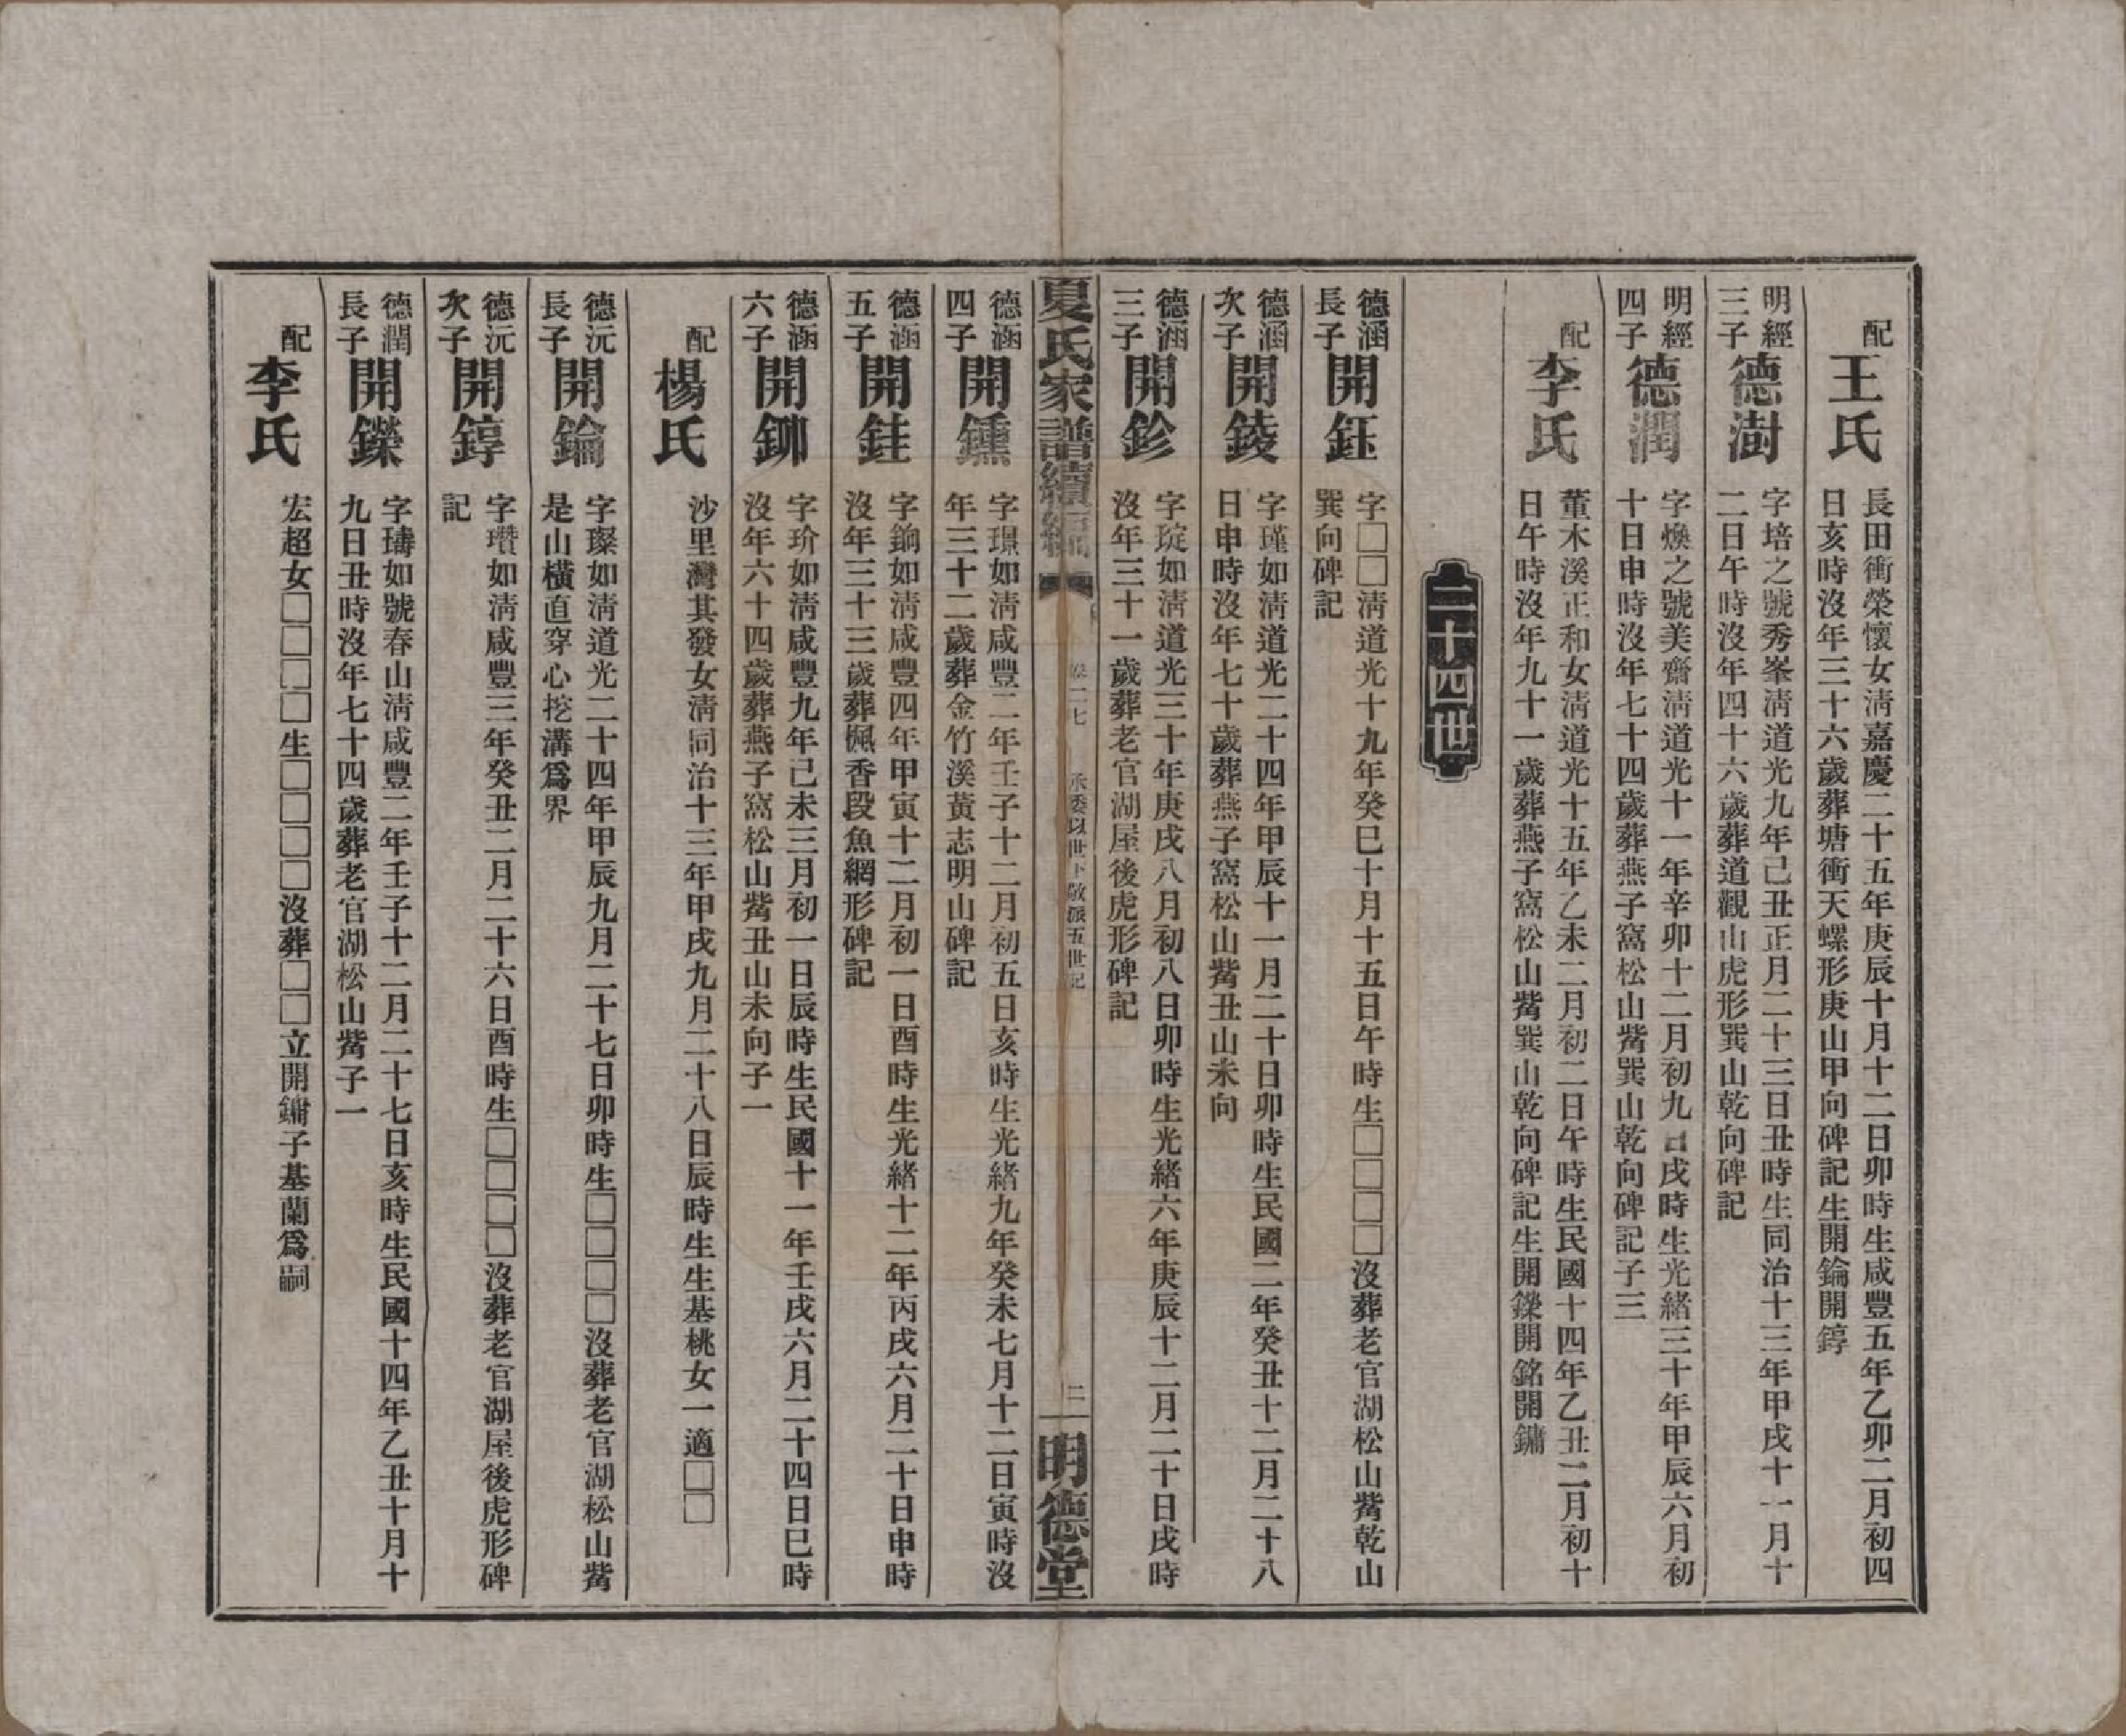 配
王氏
長田衝榮懷女清嘉慶二十五年庚辰十月十二日卯時生咸豐五年乙卯二月初四
日亥時沒年三十六歲葬塘衝天螺形庚山甲向碑記生開鑰開錞
明經
三子
德澍
字培之號秀峯清道光九年己丑正月二十三日丑時生同治十三年甲戌十一月十
二日午時沒年四十六歲葬道觀山虎形巽山乾向碑記
明經
四子
德潤
字煥之號美齋清道光十一年辛卯十二月初九日戌時生光緒三十年甲辰六月初
十日申時沒年七十四歲葬燕子窩松山觜巽山乾向碑記子三
配
李氏
董木溪正和女清道光十五年乙未二月初二日午時生民國十四年乙丑二月初十
日午時沒年九十一歲葬燕子窩松山觜巽山乾向碑記生開鑅開銘開鏞
二十四世
德涵
長子
開鈺
字□□清道光十九年癸巳十月十五日午時生□□□□沒葬老官湖松山觜乾山
巽向碑記
德涵
次子
開錂
字瑾如清道光二十四年甲辰十一月二十日卯時生民國二年癸丑十二月二十八
日申時沒年七十歲葬燕子窩松山觜丑山未向
德涵
三子
開鉁
字琔如清道光三十年庚戌八月初八日卯時生光緒六年庚辰十二月二十日戌時
沒年三十一歲葬老官湖屋後虎形碑記
夏氏家譜續編
卷二七
承委以世下敬派五世記
二
明德堂
德涵
四子
開鑂
字璟如清咸豐二年壬子十二月初五日亥時生光緒九年癸未七月十二日寅時沒
年三十二歲葬金竹溪黃志明山碑記
德涵
五子
開銈
字鋗如清咸豐四年甲寅十二月初一日酉時生光緒十二年丙戌六月二十日申時
沒年三十三歲葬楓香段魚網形碑記
德涵
六子
開鉚
字玠如清咸豐九年己未三月初一日辰時生民國十一年壬戌六月二十四日巳時
沒年六十四歲葬燕子窩松山觜丑山未向子一
配
楊氏
沙里灣其發女清同治十三年甲戌九月二十八日辰時生生基桃女一適□□
德沅
長子
開鑰
字璨如清道光二十四年甲辰九月二十七日卯時生□□□□沒葬老官湖松山觜
是山橫直穿心挖溝爲界
德沅
次子
開錞
字瓚如清咸豐三年癸丑二月二十六日酉時生□□□□沒葬老官湖屋後虎形碑
記
德潤
長子
開鑅
字璹如號春山清咸豐二年壬子十二月二十七日亥時生民國十四年乙丑十月十
九日丑時沒年七十四歲葬老官湖松山觜子一
配
李氏
宏超女□□□□生□□□□沒葬□□立開鏞子基蘭爲嗣